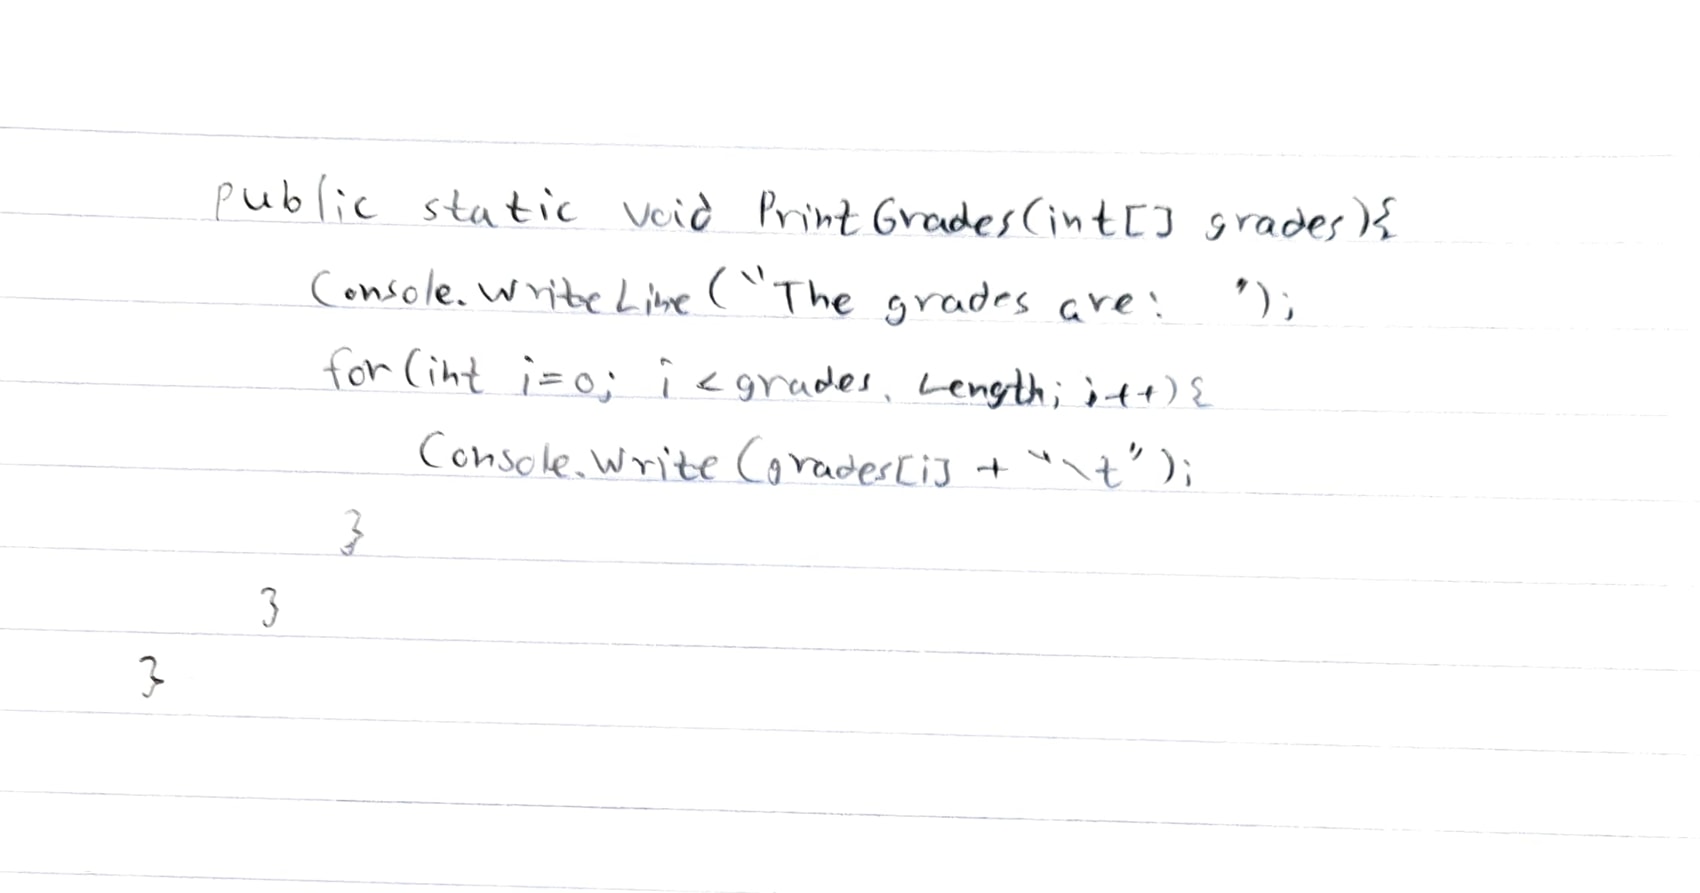 public static void PrintGrades(int[] grades){
Console.WriteLine("The grades are: ");
for(int i=0; i<grades.Length; i++){
Console.Write(grades[i] + "\t");
}
}
}